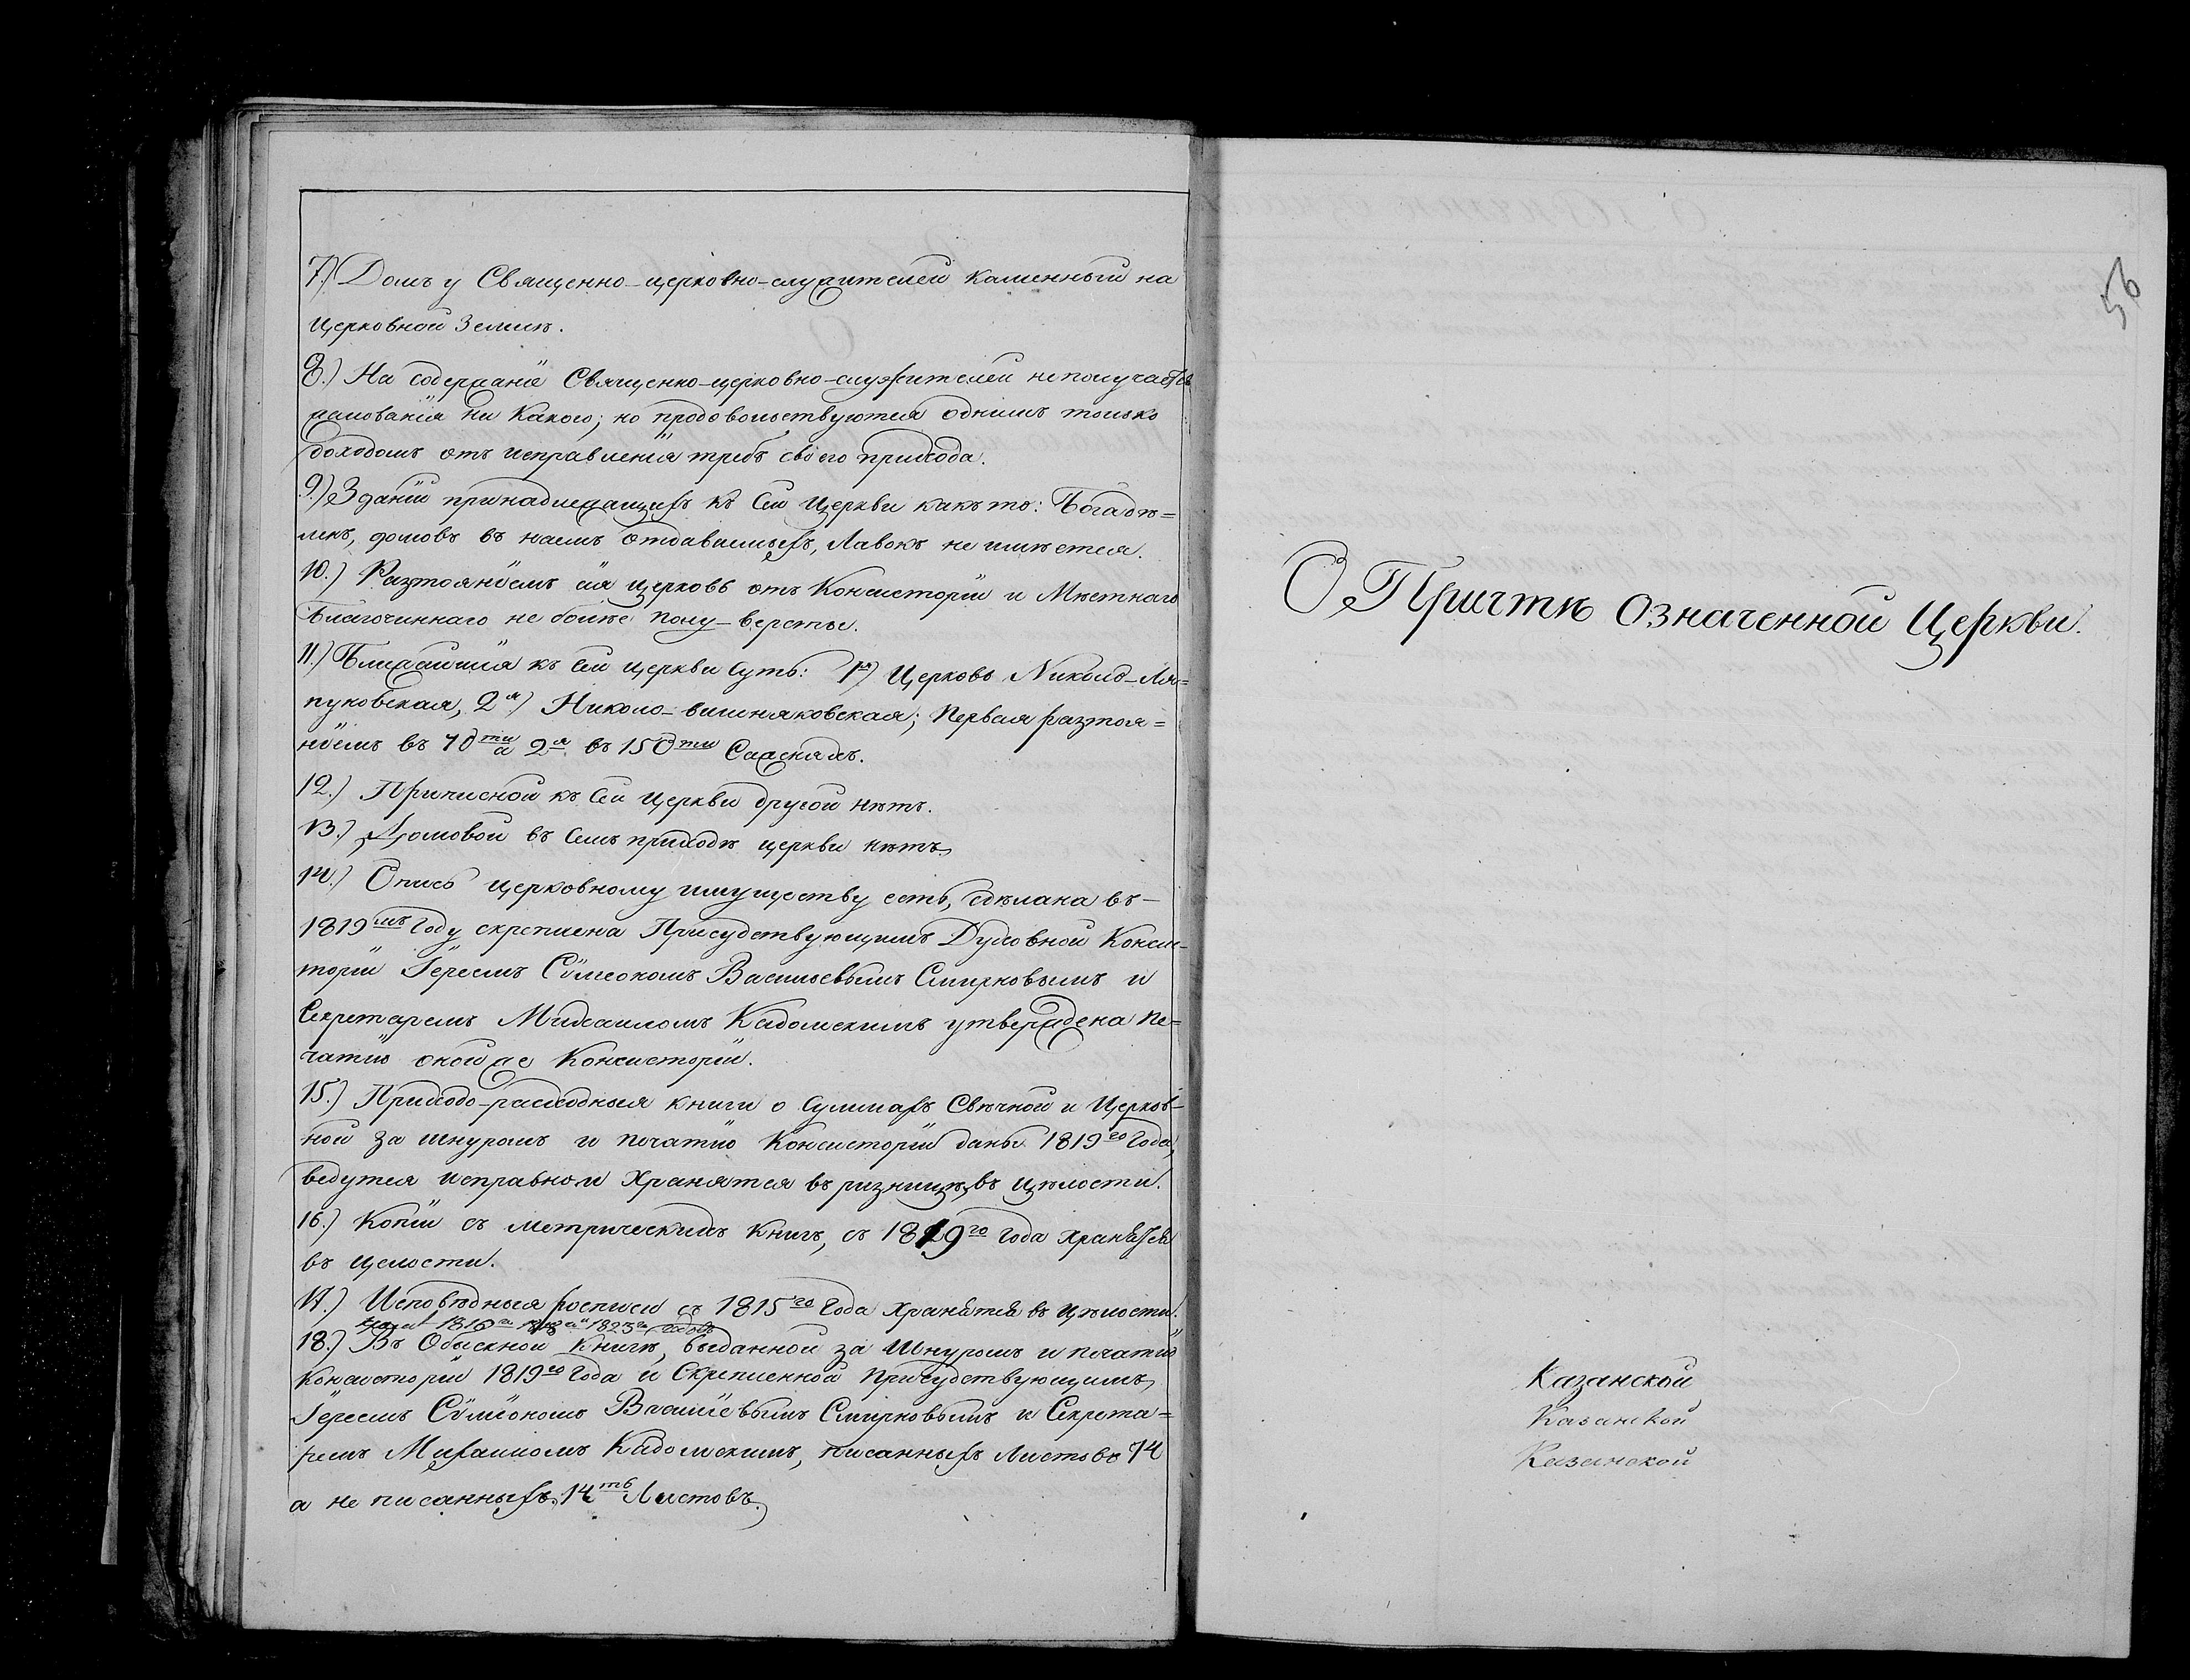 7.) Домъ у Священно-церковно-служителей каменный на
Церковной Землѣ.
8.) На содержаніе Священно-церковно-служителей не получается
жалованія ни какого; но продовольствуются однимъ только
доходомъ отъ исправленія требъ своего прихода.
9.) Зданій принадлежащихъ къ сей Церкви какъ то: Богадѣ=
ленъ, домовъ въ наемъ отдаваемыхъ, Лавокъ не имѣется.
10.) Разтояніемъ сія церковь отъ Консисторіи и Мѣстнаго
Благочиннаго не болѣе полу-версты.
11.) Ближайшія къ сей церкви суть: 1я) Церковь Николо-Ля=
пуновская, 2я) Николо-вишняковская; Первая разтоя=
ніемъ въ 70ти а 2я въ 150ти Саженяхъ.
12.) Приписной къ сей церкви другой нѣтъ.
13.) Домовой въ семъ приходѣ церкви нѣтъ.
14.) Опись церковному имуществу есть, сдѣлана въ-
1819мъ Году скрепиена Присудствующимъ Духовной Конси-
торіи Іереемъ Сѵмеономъ Васильевымъ Смирновымъ и
Секретаремъ Михаиломъ Кадомскимъ утверждена Пе=
чатію оной же Консисторіи.
15.) Приходо-расходныя книги о Суммахъ Свѣчной и Церков-
ной за шнуромъ и печатію Консисторіи даны 1819го Года,
ведутся исправно и Хранятся въ ризницѣ въ цѣлости.
16.) Копіи съ метрическихъ книгъ, съ 1819го Года хранятся
въ целости.
17.) Исповѣдныя росписи съ 1815го Года Хранятся въ цѣлости.
1816го 1823го годовъ
18.) Въ Обыскной Книгѣ, выданной за Шнуромъ и печатію
Консисторіи 1819го Года и Скрепленной Присудствующимъ
Іереемъ Сѵмеономъ Васильевымъ Смирновымъ и Секрета=
ремъ Михаиломъ Кадомскимъ, писанныхъ Листовъ 74
а не писанныхъ 14ть Листовъ.
56
О Причтѣ означенной Церкви.
Казанской
Казанской
Казанской